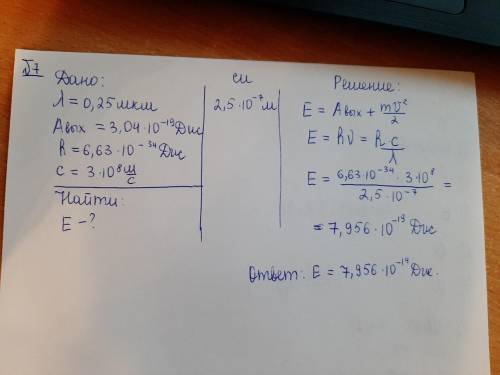 √7
Дано:
λ = 0,25 мкм
Aвых = 3,04·10⁻¹⁹ Дж
h = 6,63·10⁻³⁴ Дж
c = 3·10⁸ м/с
Найти:
E – ?
си
2,5·10⁻⁷ м
Решение:
E = Aвых + mυ²/2
E = hν = h c/λ
E = 6,63·10⁻³⁴ · 3·10⁸ / 2,5·10⁻⁷ =
= 7,956·10⁻¹⁹ Дж
Ответ: E = 7,956·10⁻¹⁹ Дж.